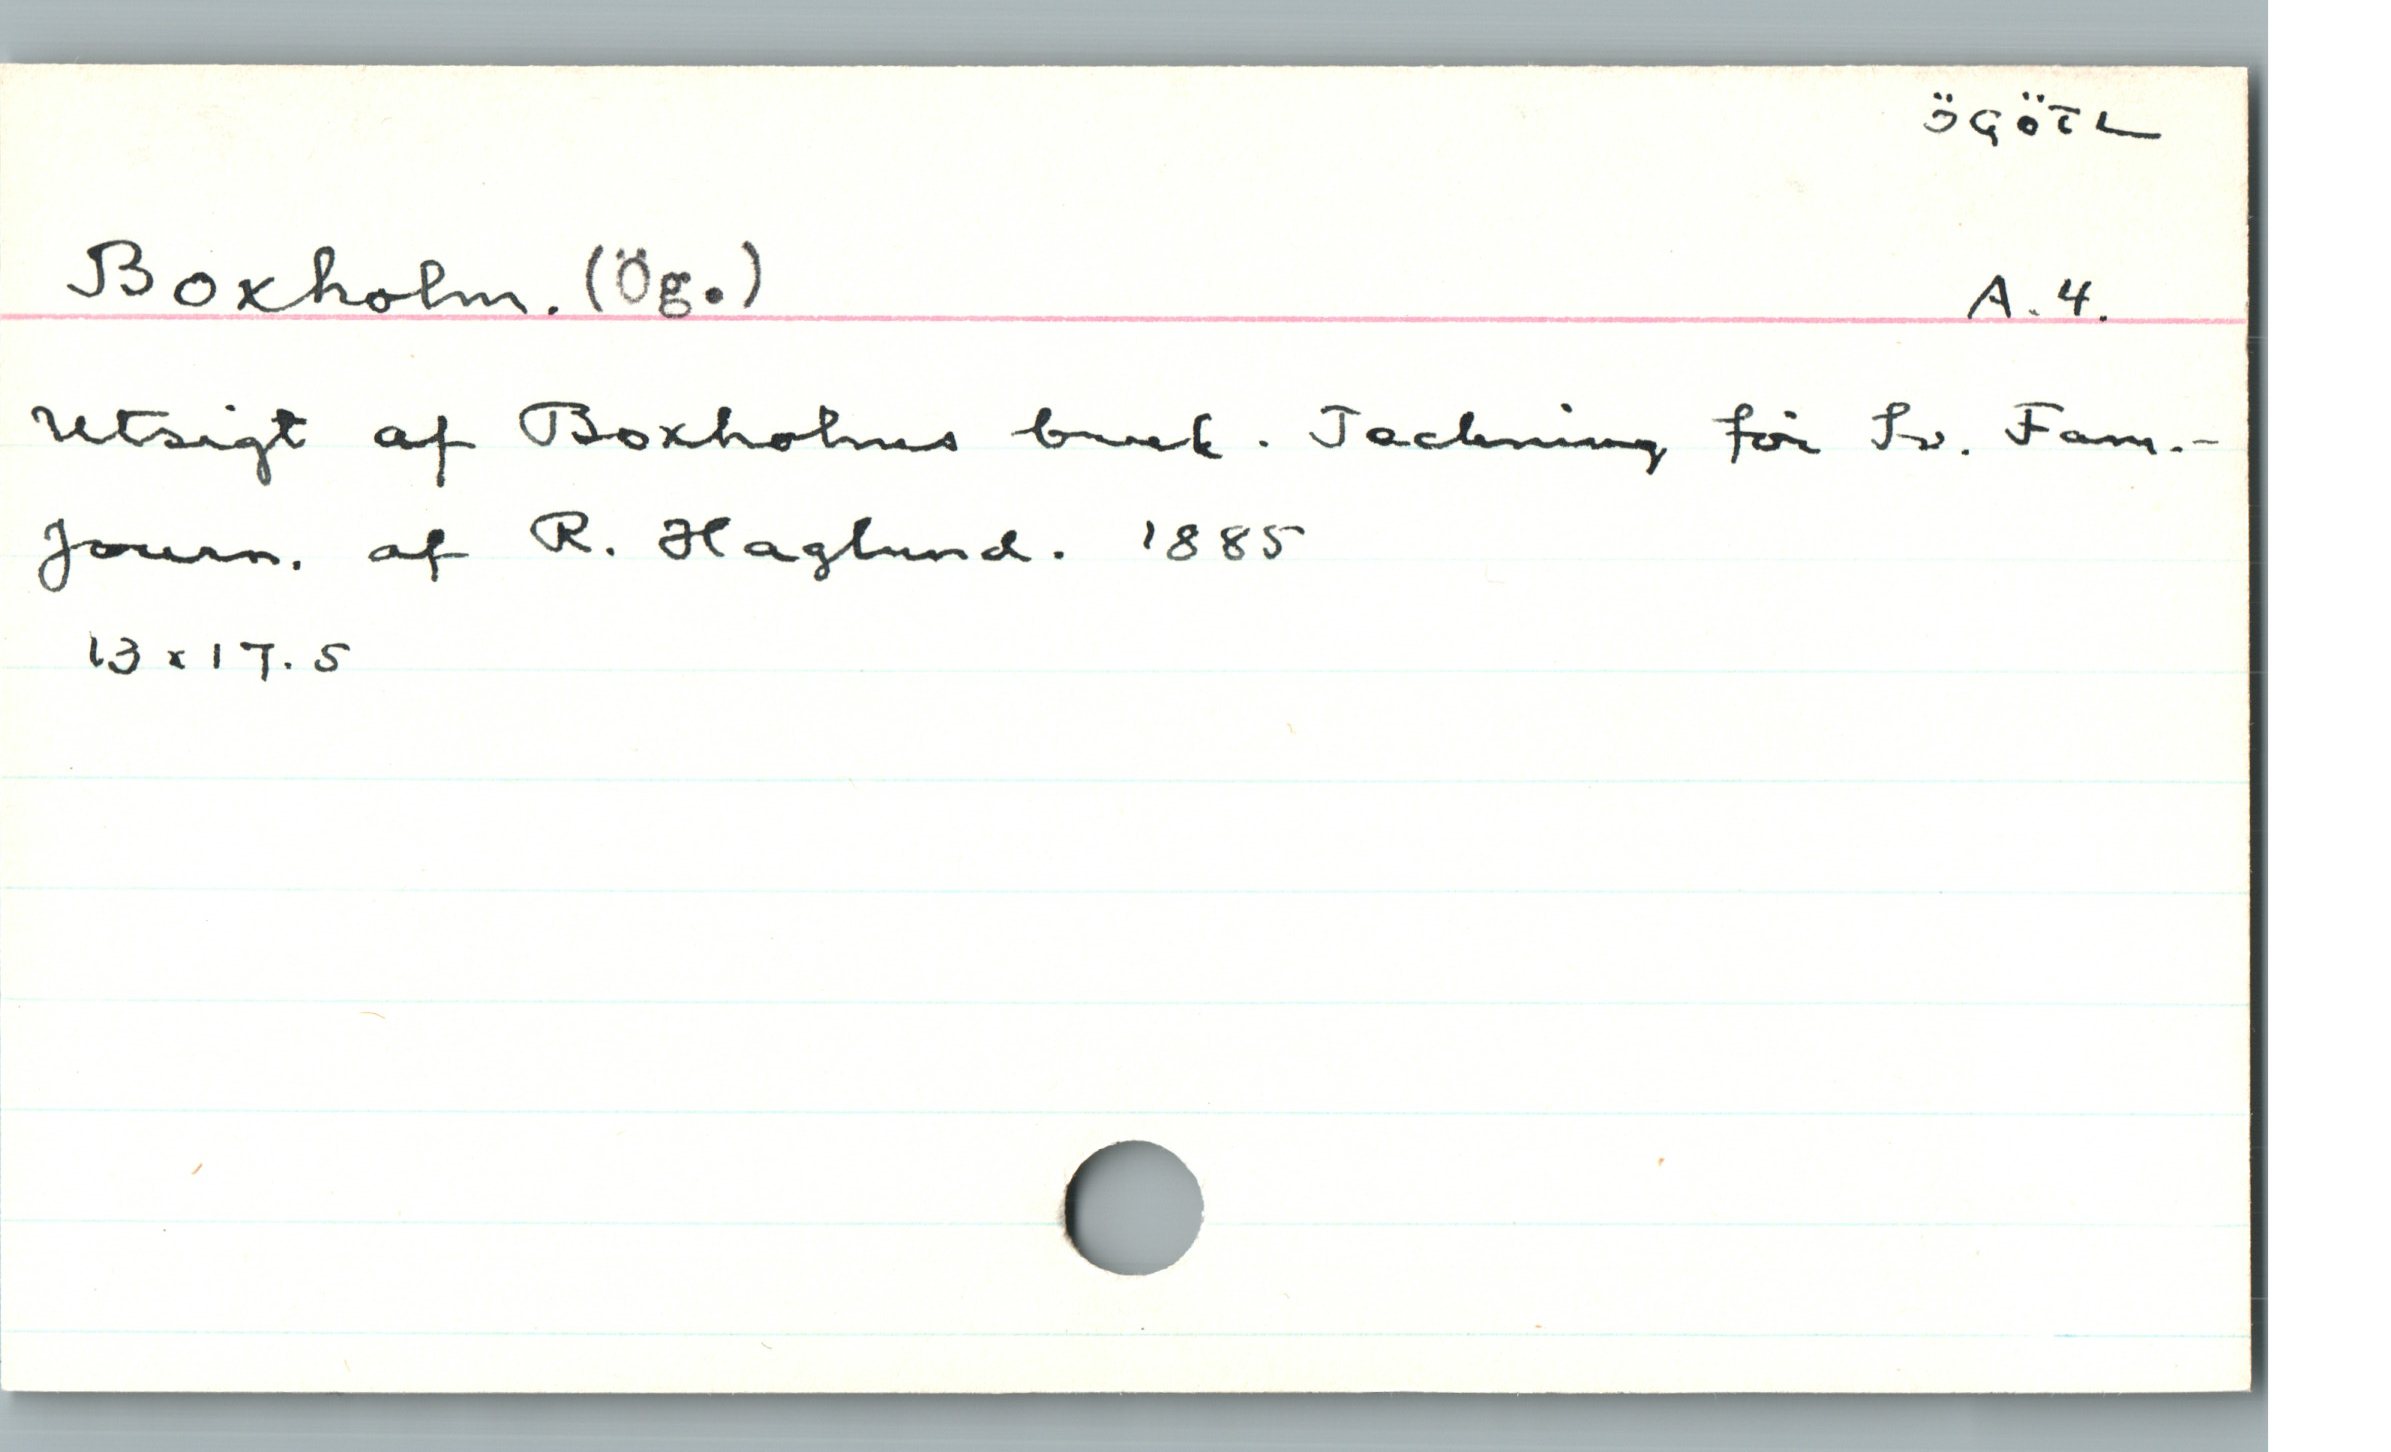 ÖGÖTL
Boxholm. (Ög.) A.4.
Utsigt af Boxholms bruk. Teckning för Sv. Fam.-
Journ. af R. Haglund. 1885
13x17.5